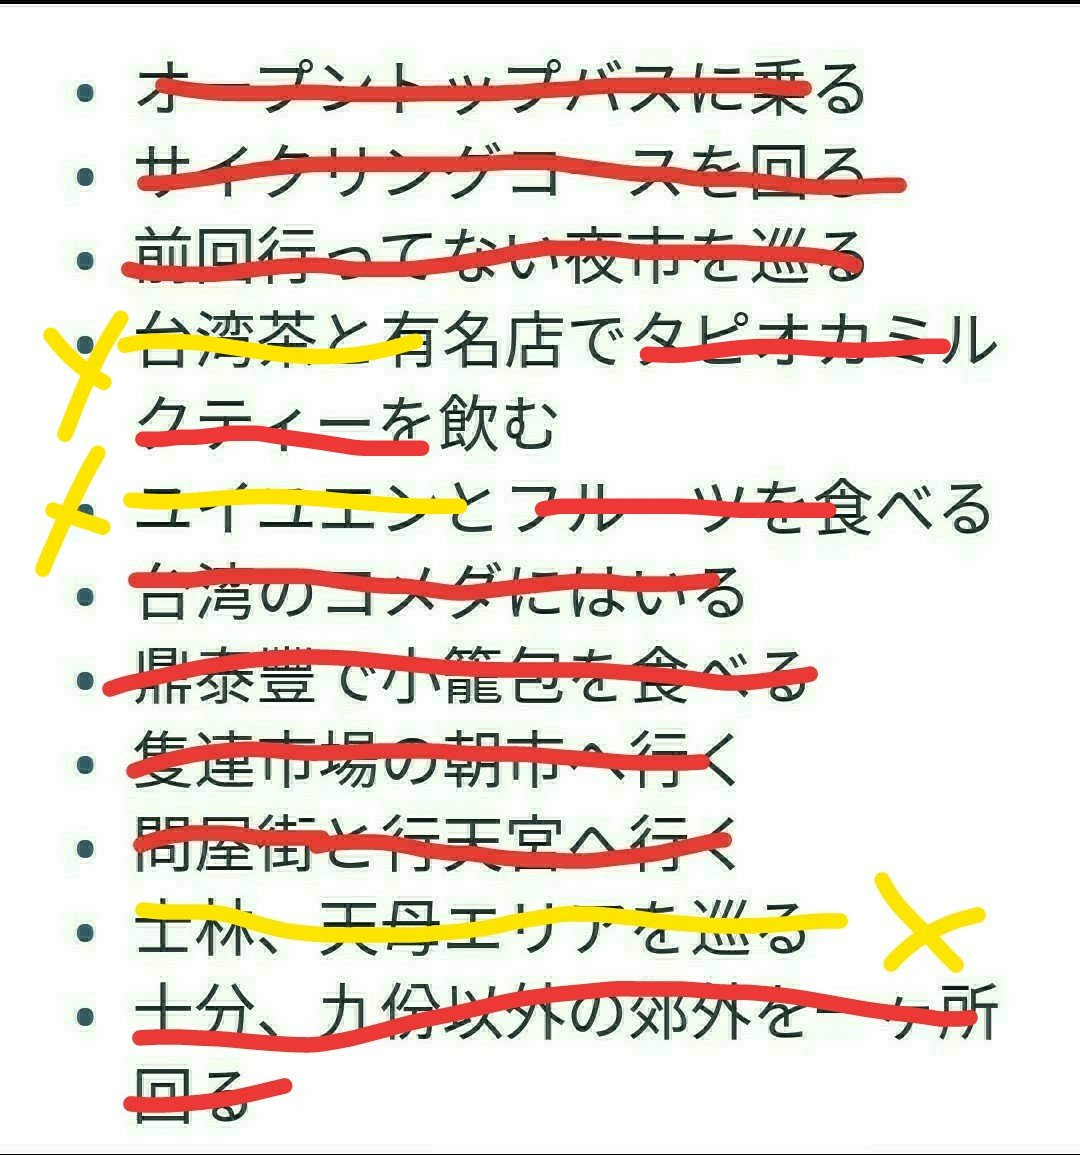 • オープントップバスに乗る
• サイクリングコースを回る
• 前回行ってない夜市を巡る
• 台湾茶と有名店でタピオカミル
クティーを飲む
• ユイユエンとフルーツを食べる
• 台湾のコメダにはいる
• 鼎泰豐で小籠包を食べる
• 隻連市場の朝市へ行く
• 問屋街と行天宮へ行く
• 士林、天母エリアを巡る
• 十分、九份以外の郊外を一ヶ所
回る